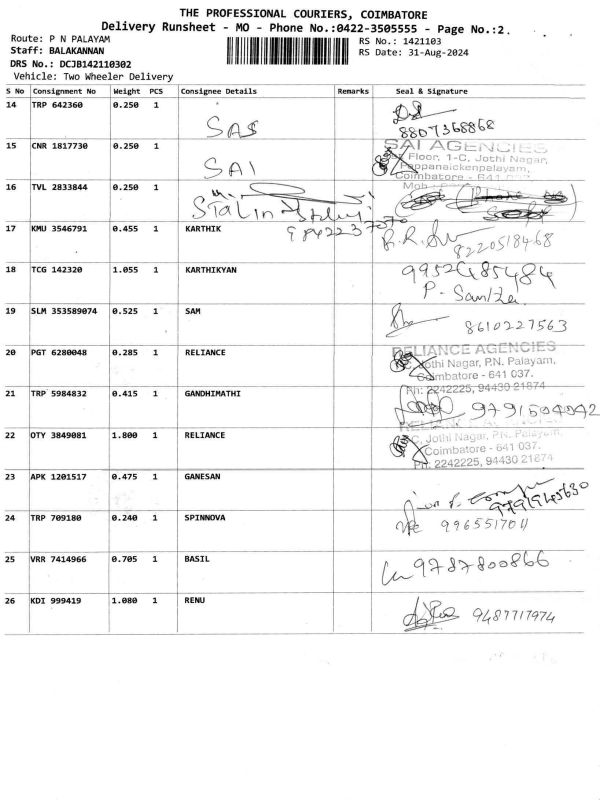 THE PROFESSIONAL COURIERS, COIMBATORE
Delivery Runsheet - MO - Phone No.:0422-3505555 - Page No.:2.
Route: P N PALAYAM
RS No.: 1421103
Staff: BALAKANNAN
RS Date: 31-Aug-2024
DRS No.: DCJB142110302
Vehicle: Two Wheeler Delivery
S No Consignment No Weight PCS Consignee Details Remarks Seal & Signature
14 TRP 642360 0.250 1 SAS
8807368868
15 CNR 1817730 0.250 1 SAI
SAI AGENCIES
Floor, 1-C, Jothi Nagar,
Pappanaickenpalayam,
Coimbatore - 641 037
Mob
16 TVL 2833844 0.250 1 Stalin
9842237070
17 KMU 3546791 0.455 1 KARTHIK
8220518468
18 TCG 142320 1.055 1 KARTHIKYAN
9952485484
P.
19 SLM 353589074 0.525 1 SAM
8610227563
20 PGT 6280048 0.285 1 RELIANCE
RELIANCE AGENCIES
Jothi Nagar, P.N. Palayam,
Coimbatore - 641 037.
Ph: 2242225, 94430 21874
21 TRP 5984832 0.415 1 GANDHIMATHI
9791504042
22 OTY 3849081 1.800 1 RELIANCE
RELIANCE AGENCIES
C, Jothi Nagar, P.N. Palayam,
Coimbatore - 641 037.
Ph: 2242225, 94430 21874
23 APK 1201517 0.475 1 GANESAN
24 TRP 709180 0.240 1 SPINNOVA
996551704
25 VRR 7414966 0.705 1 BASIL
9787800866
26 KDI 999419 1.080 1 RENU
9487717974